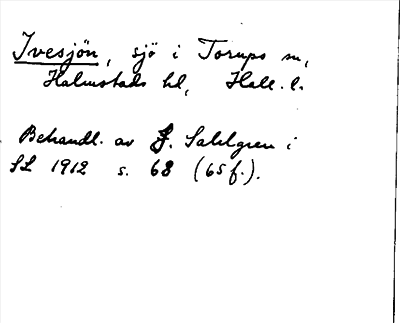 Ivesjön, sjö i Torups sn,
Halmstads hd, Hall. l.
Behandl. av J. Sahlgren i
SL 1912 s. 68 (65f.).